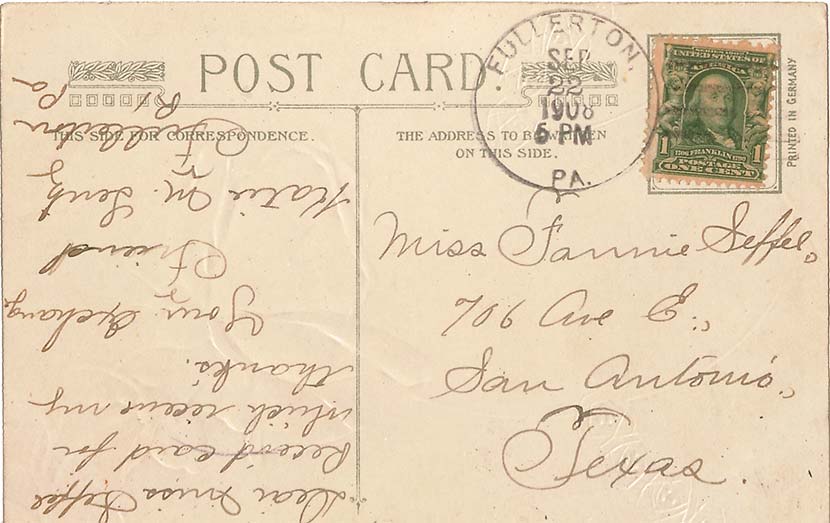 POST CARD.
THIS SIDE FOR CORRESPONDENCE.
THE ADDRESS TO BE WRITTEN
ON THIS SIDE.
FULLERTON,
SEP
22
1908
5 PM
PA.
UNITED STATES OF
AMERICA
1 1706 FRANKLIN 1790 1
POSTAGE
ONE CENT
PRINTED IN GERMANY
Miss Fannie Seffel,
706 Ave E.,
San Antonio,
Texas.
Dear Miss Seffel
Receiv'd card for
which receive my
thanks.
Your Exchang
Friend
Katie M. Lentz
Fullerton
R1 Pa